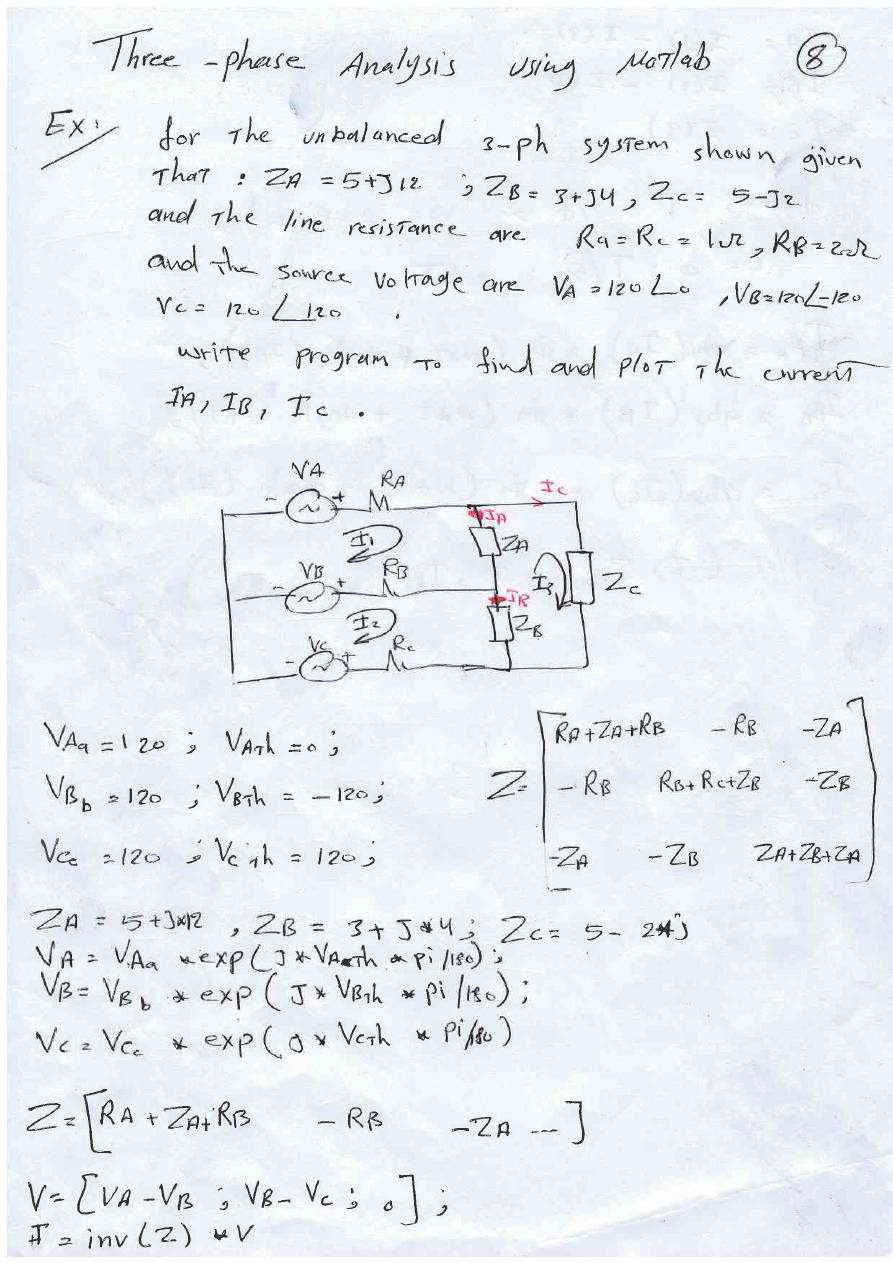 Three-phase Analysis using MaTlab 8
Ex:
for The unbalanced 3-ph system shown given
That : ZA = 5+J12 ; ZB = 3+J4, Zc = 5-J2
and The line resistance are Ra=Rc=1Ω, RB=2Ω
and the source Voltage are VA=120∠0 , VB=120∠-120
Vc= 120 ∠120 .
write program To find and PLOT The current
IA, IB, Ic .
VA
- +
RA
Ic
IA
I1
ZA
VB
- +
RB
I3
Zc
IB
I2
ZB
Vc
- +
Rc
VAa = 120 ; VATh = 0 ;
VBb = 120 ; VBTh = -120 ;
Vcc = 120 ; VcTh = 120 ;
Z= [ RA+ZA+RB -RB -ZA
-RB RB+Rc+ZB -ZB
-ZA -ZB ZA+ZB+ZA ]
ZA = 5+J*12 , ZB = 3+J*4 ; Zc = 5-2*j
VA = VAa *exp(J*VATh * pi/180);
VB = VBb * exp(J* VBTh * Pi/180);
Vc = Vcc * exp(J* VcTh * Pi/180)
Z=[RA+ZA+RB -RB -ZA ---]
V=[VA-VB ; VB-Vc ; 0];
I = inv(Z) *V